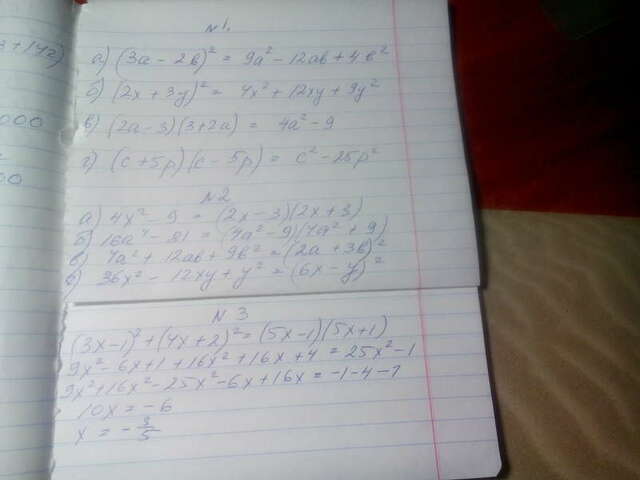 3+14z)
000
00
N1.
а) (3a - 2b)² = 9a² - 12ab + 4b²
б) (2x + 3y)² = 4x² + 12xy + 9y²
в) (2a - 3)(3 + 2a) = 4a² - 9
г) (c + 5p)(c - 5p) = c² - 25p²
N2
а) 4x² - 9 = (2x - 3)(2x + 3)
б) 16a⁴ - 81 = (4a² - 9)(4a² + 9)
в) 4a² + 12ab + 9b² = (2a + 3b)²
в) 36x² - 12xy + y² = (6x - y)²
N3
(3x - 1)² + (4x + 2)² = (5x - 1)(5x + 1)
9x² - 6x + 1 + 16x² + 16x + 4 = 25x² - 1
9x² + 16x² - 25x² - 6x + 16x = -1 - 4 - 1
10x = -6
x = -3/5